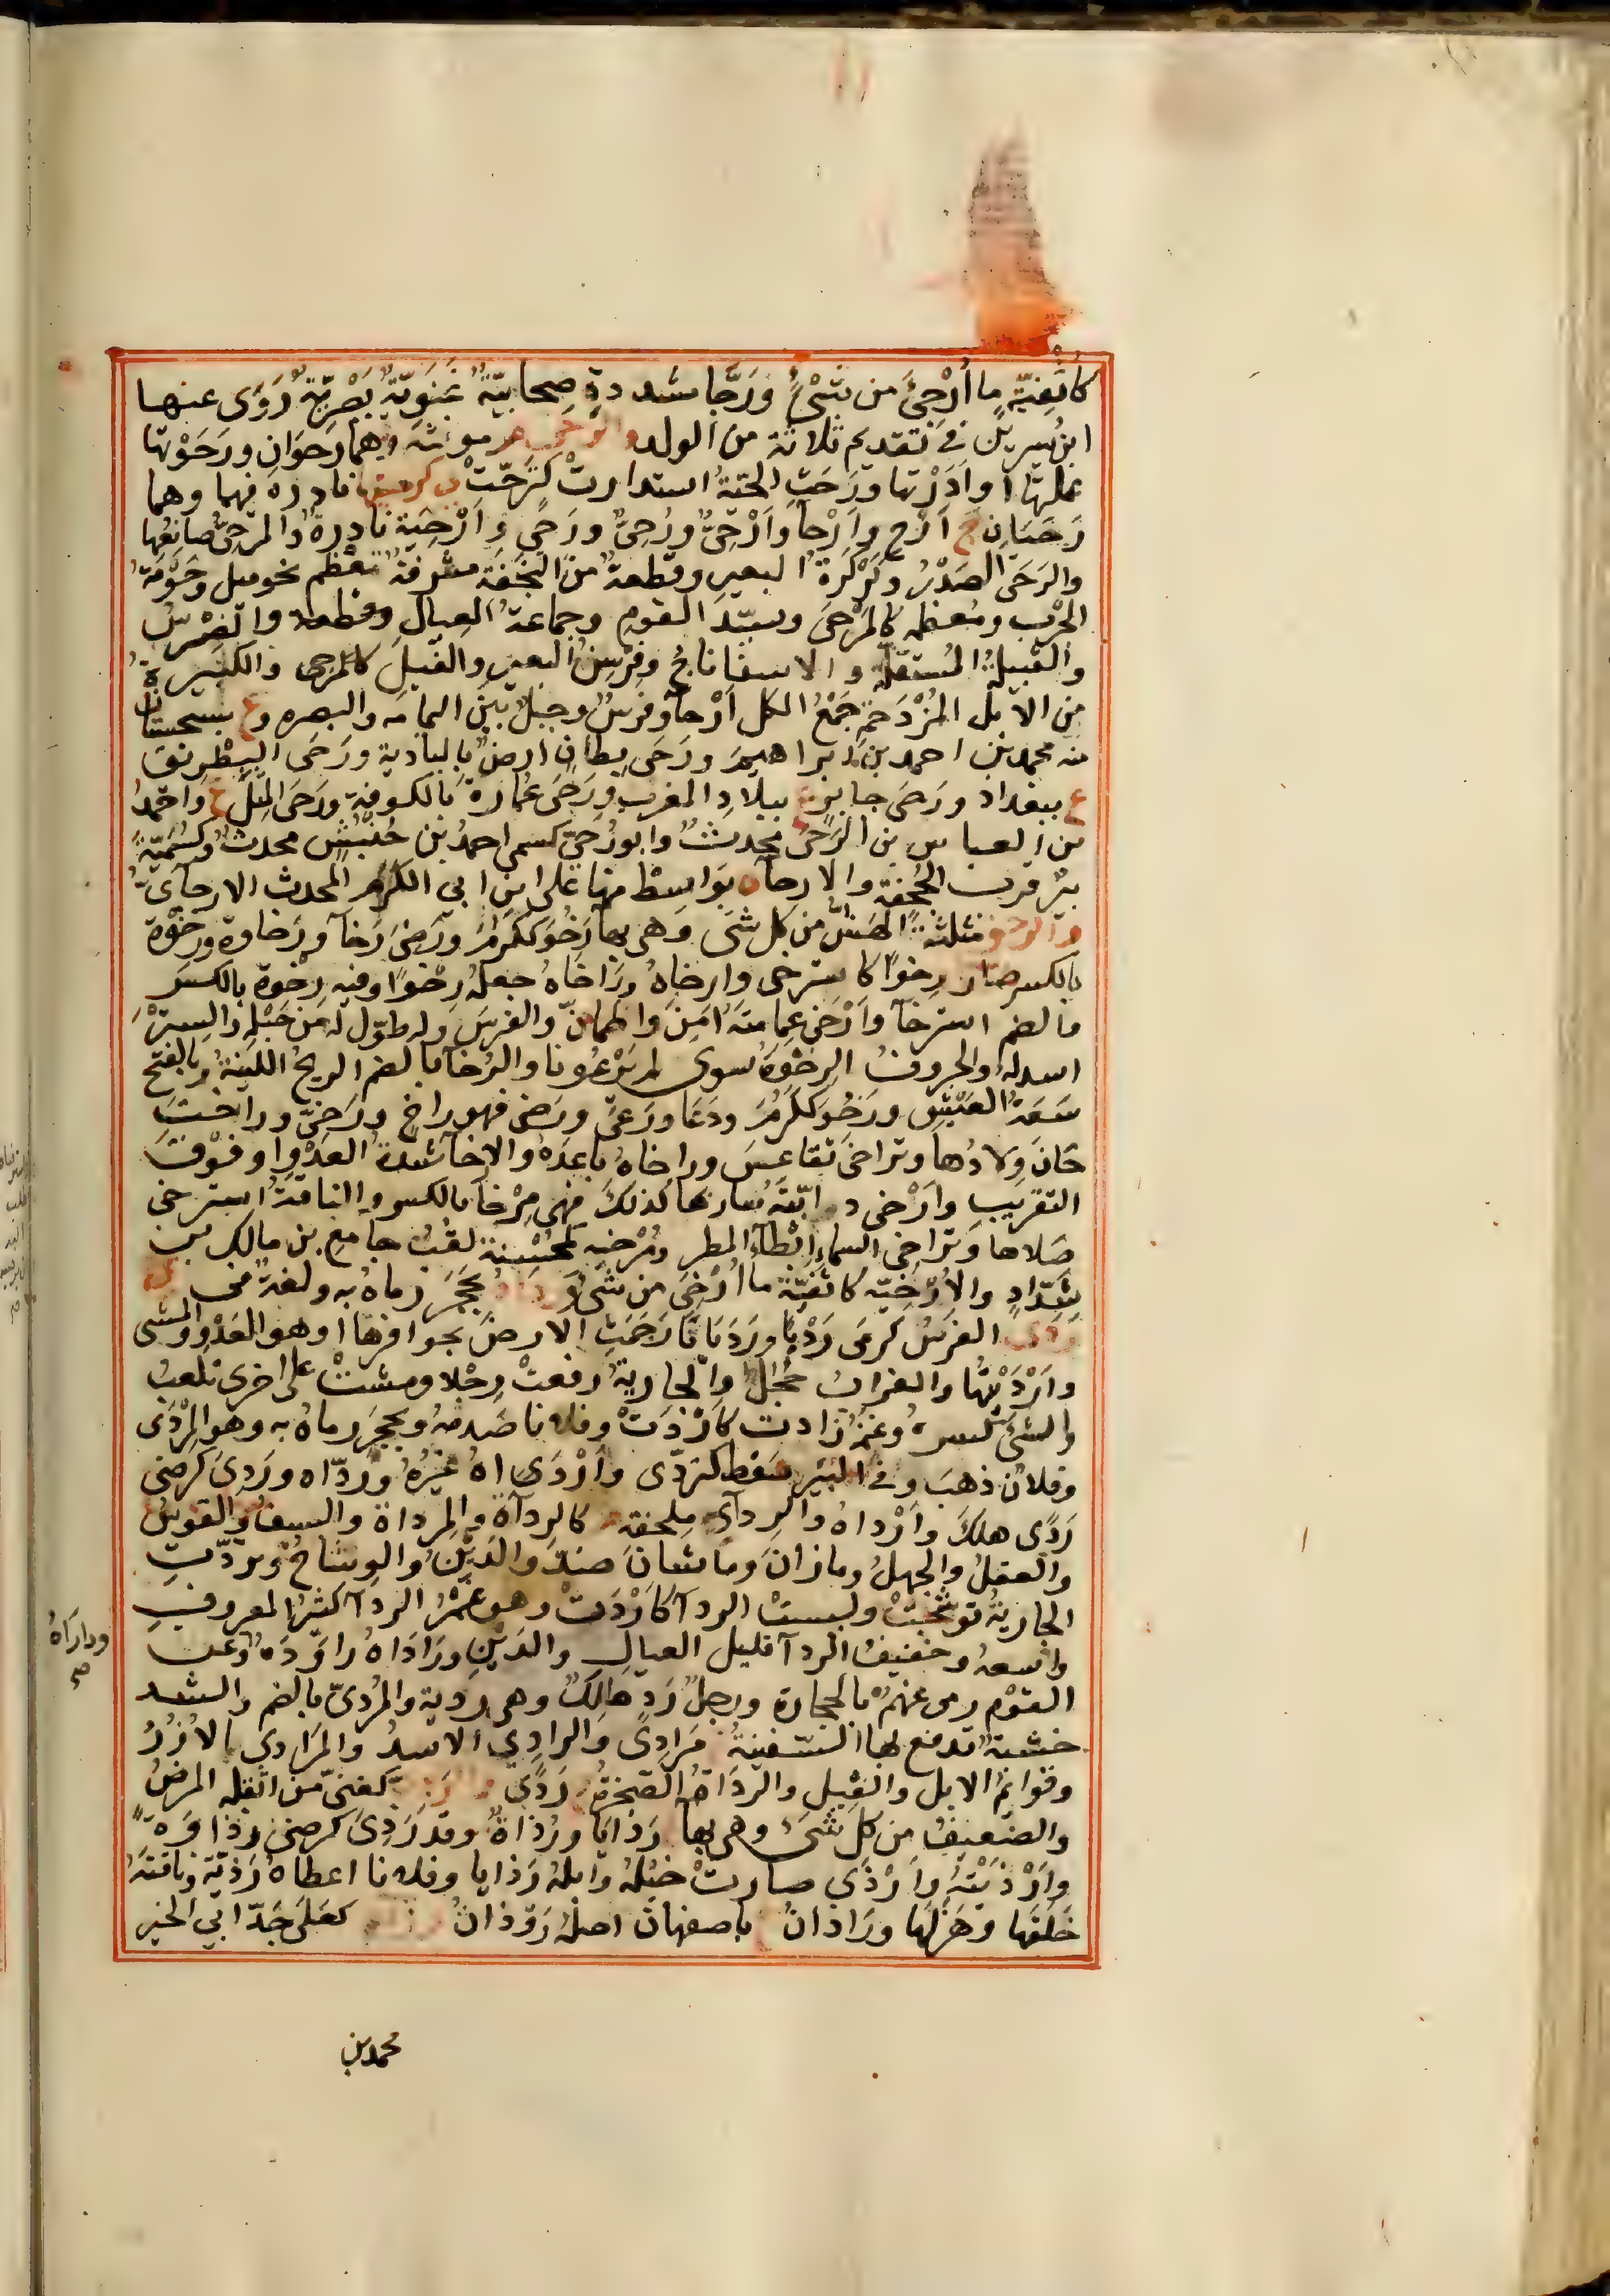 كاثفيّة ما أُرجئ من شئ ورَجّا مشددة صحابيّة غنويّة بصريّة روى عنها
ابن سيرين في تقديم ثلاثة من الولد والرحى مونثة وهما رحوان ورحوتها
عملتها او ادرتها ورحت الحية استدارت كترحّت نادرة فيهما وهما
رحيان ج ارح وارحآ واَرحِىّ ورُحِىّ ورِحِى وارحية نادرة والمرحى صانعها
والرحى الصدر وكركرة البعير وقطعة من النجفة مشرفة تعظم نحو ميل وحومة
الحرب ومعظمه كالمرحى وسيد القوم وجماعة العيال والضرس
والقبيلة المستقلة والاسفاناخ وفرسن البعير والفيل كالمرحى والكثيرة
من الابل المزدحمة جمع الكل ارحآ وفرس وجبل بين اليمامه والبصره وع بسجستان
منه محمد بن احمد بن ابراهيم ورحى بطان ارض بالبادية ورحى البطريق
ع ببغداد ورحى جابر ع ببلاد المغرب ورحى عمارة بالكوفة ورحى المثل ع واحمد
بن العباس بن الرحى محدث وابو رحىّ كسمى احمد بن خنبش محدث وكسميّة
بئر قرب الجحفة والارحآ ة بواسط منها على ابن ابي الكرم المحدث الارحآىّ
والرخو مثلثة الهشّ من كل شى وهى بهآ رخو ككرم ورضى رخآ ورخاوة ورخوة
بالكسر صار رخوًا كاسترخى وارخاه وراخاه جعله رخوًا وفيه رخوة بالكسر
والضم استرخآ وارخى عمامته امن واطمانّ والفرس وله طوّل له من حبله والستر
اسدله والحروف الرخوة سوى لم يرعونا والرخآ بالضم الريح اللينة وبالفتح
سعة العيش ورخو ككرم ودعا ورعى ورضى فهو راخ ورخىّ وراخت
حان ولادها وتراخى تقاعس وراخاه باعده والارخآ شدة العدو او فوق
التقريب وارخى دابّته سار بها كذلك فهى مرخآ بالكسر والناقة استرخى
صلاها وتراخى السماء ابطآء المطر ومُرخيه كمحسنة لقب جامع بن مالك بن
شدّاد والارخيّه كاثفيّة ما ارخى من شئ ورداه بحجر رماه به ولغة في
ردى الفرس كرمى رديا ورديانا رجمت الارض بحوافرها او هو العدو والمشى
وارديتها والغراب حجل والجارية رفعت رجلا ومشت على اخرى تلعب
والشئ كسره وغنمه زادت كاردت وفلانا صدمه وبحجر رماه به وهو المردى
وفلان ذهب وفى البير سقط كتردّى وارداه غيره وردّاه وردى كرضى
ردًى هلك وارداه والردآ ملحفة كالردآة والمرداة والسيف والقوس
والعقل والجهل وما زان وما شان ضدّ والدّين والوشاح وتردّت
الجارية توشحت ولبست الردآ كاردت وهو غمر الردآ كثير المعروف
واسعه وخفيف الردآ قليل العيال والدين وراداه راوده وعن
القوم رمى عنهم بالحجارة ورجل رد هالك وهى ردية والمردىّ بالضم والشد
خشبة تدفع بها السفينة مرادى والرادى الاسد والمرادى الازر
وقوائم الابل والفيل والرداة الصخرة ردًى كغنى من اثقله المرض
والضعيف من كل شئ وهى بهآ رذايا ورذاة وقد رذى كرضى رذاوة
وارذيته وارذى صارت خيله وابله رذايا وفلانا اعطاه رذيّة وناقته
خلفها وهزلها وراذان باصفهان اصله روذان كعلى جد ابي الخير
وداراه
صح
محمد بن